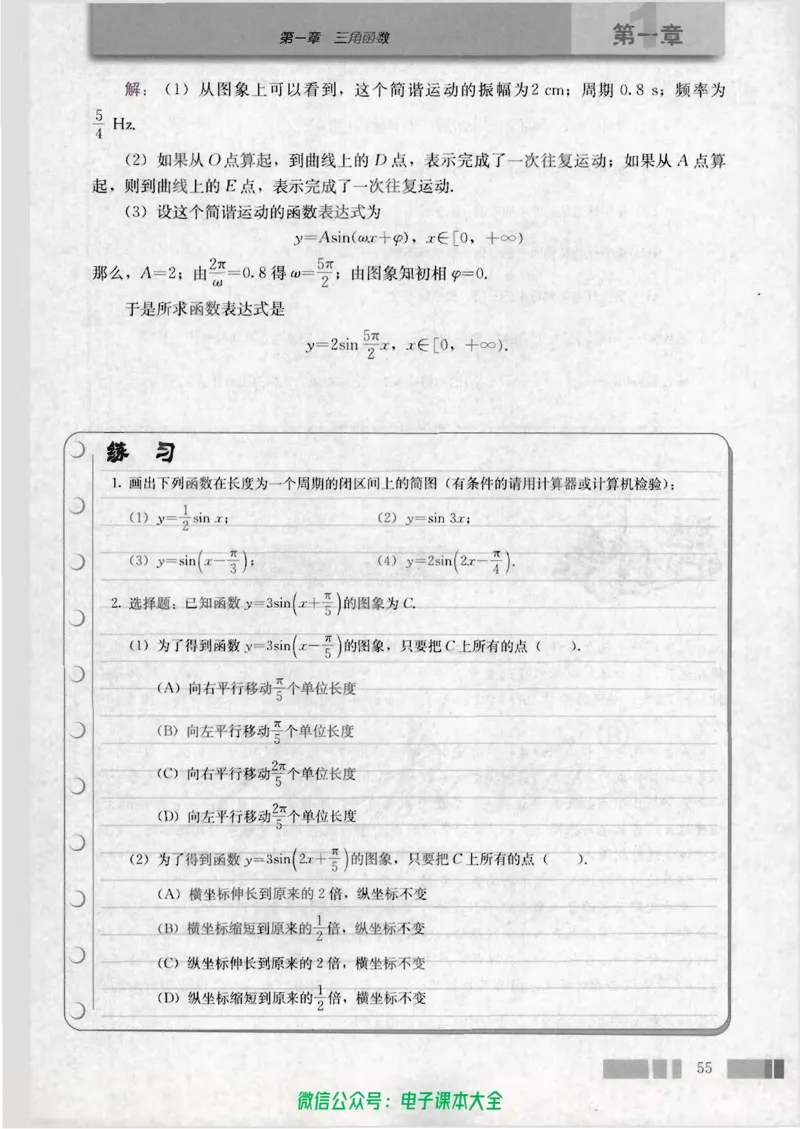 第一章 三角函数
第一章
解：（1）从图象上可以看到，这个简谐运动的振幅为2 cm；周期 0.8 s；频率为
5/4 Hz.
（2）如果从 O 点算起，到曲线上的 D 点，表示完成了一次往复运动；如果从 A 点算
起，则到曲线上的 E 点，表示完成了一次往复运动.
（3）设这个简谐运动的函数表达式为
y=Asin(ωx+φ)，x∈[0，+∞)
那么，A=2；由2π/ω=0.8 得 ω=5π/2；由图象知初相 φ=0.
于是所求函数表达式是
y=2sin 5π/2 x，x∈[0，+∞).
练 习
1. 画出下列函数在长度为一个周期的闭区间上的简图（有条件的请用计算器或计算机检验）：
（1）y=1/2 sin x； （2）y=sin 3x；
（3）y=sin(x-π/3)； （4）y=2sin(2x-π/4).
2. 选择题：已知函数 y=3sin(x+π/5)的图象为 C.
（1）为了得到函数 y=3sin(x-π/5)的图象，只要把 C 上所有的点（ ）.
（A）向右平行移动π/5个单位长度
（B）向左平行移动π/5个单位长度
（C）向右平行移动2π/5个单位长度
（D）向左平行移动2π/5个单位长度
（2）为了得到函数 y=3sin(2x+π/5)的图象，只要把 C 上所有的点（ ）.
（A）横坐标伸长到原来的 2 倍，纵坐标不变
（B）横坐标缩短到原来的1/2倍，纵坐标不变
（C）纵坐标伸长到原来的 2 倍，横坐标不变
（D）纵坐标缩短到原来的1/2倍，横坐标不变
55
微信公众号：电子课本大全